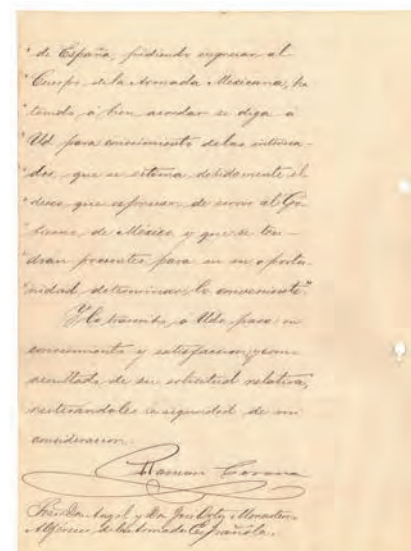 " de España, pidiendo ingresar al
" Cuerpo de la Armada Mexicana, ha
" tenido á bien acordar se diga á
" Ud. para conocimiento de los interesa-
" dos, que se estima debidamente el
" deseo que expresan de servir al Go-
" bierno de México y que se ten-
" drán presentes para en su oportu-
" nidad determinar lo conveniente."
Y lo trascribo á Uds. para su
conocimiento y satisfaccion, y como
resultado de su solicitud relativa,
reiterándoles la seguridad de mi
consideracion.
Ramon Corona
Señores Don Angel y Dn. José Ortiz Monasterio
Alféreces de la Armada Española.